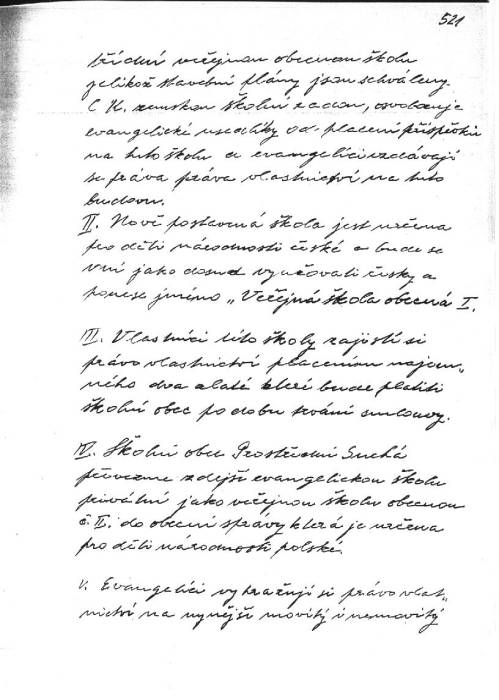 521
třídní veřejnou obecnou školu
jelikož stavební plány jsou schváleny
C. K. zemskou školní radou, osvobozuje
evangelické usedlíky od placení příspěvků
na tuto školu a evangelíci vzdávají
se práva práva vlastnictví na tuto
budovu.
II. Nově postavená škola jest určena
pro děti národnosti české a bude se
v ní jako dosud vyučovati česky a
ponese jméno „Veřejná škola obecná I.
III. Vlastníci této školy zajistí si
právo vlastnictví placením nájem„
ného dva zlaté které bude platiti
školní obec po dobu trvání smlouvy.
IV. Školní obec Prostřední Suchá
převezme zdejší evangelickou školu
privátní jako veřejnou školu obecnou
č. II. do obecní správy která je určena
pro děti národnosti polské.
V. Evangelíci vyhražují si právo vlast„
nictví na nynější movitý i nemovitý